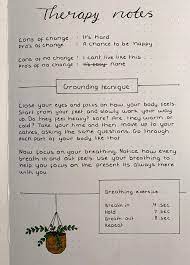 Therapy notes
cons of change : It's Hard
Pro's of change : A chance to be happy
Cons of no change : I can't live like this...
pro's of no change : It's easy None
Grounding tecnique
Close your eyes and focus on how your body feels.
Start from your feet and slowly work your way
up. Do they feel heavy? sore? Are they warm or
cold? Take your time and then, move up to your
calves, asking the same questions. Go through
each part of your body like that
Now focus on your breathing. Notice how every
breath in and out feels. Use your breathing to
help you focus on the present its always there
with you.
Breathing exercise
Breath in 4 sec
Hold 7 sec
Breath out 8 sec
Repeat